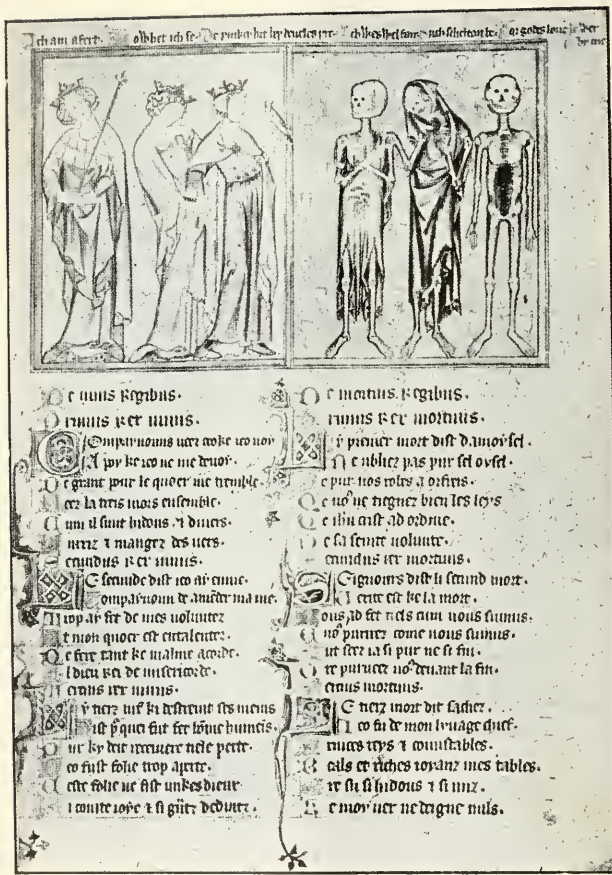 Ich am afert. Lo whet ich se. Me þinkes hit bey deueles þre. Ich wes wel fair. Such scheltou be. For godes loue be wer
by me
De uiuis Regibus.
Primus rex uiuus.
Compaynouns ueez ceo ke ieo uoy
A poy ke ieo ne me deuoy.
De grant pour le quoer me tremble.
Veez la treis mors ensemble.
Cum il sunt hidous & diuers.
Purriz & mangez des uers.
Secundus Rex uiuus.
Le secunde dist ieo ay enuie.
Compaynoun de amender ma uie.
Trop ay fet de mes uoluntez
Et mon quoer est entalentez.
De fere tant ke malme acorde.
Al dieu Rei de misericorde.
Tercius rex uiuus.
Ly tierz uif ki destreint ses meins
Dist p quei fut fet home humeins.
Pur ky deit receiuere tiele perte.
Ceo fust folie trop aperte.
Ceste folie ne fist unkes dieux
Si courte ioye & si gntz deduitz.
De mortuis Regibus.
Primus Rex mortuus.
Ly primer mort dist damoysel.
Ne ubliez pas pur sel oysel.
Ne pur uos robes a orfreis.
Qe uo ne tiegnez bien les leys
Qe ihu crist ad ordine.
De sa seinte uolunte.
Secundus rex mortuus.
Seignours dist li secund mort.
Uerite est ke la mort.
Nous ad fet tiels cum nous sumus.
Et uo purrirez come nous sumus.
Tut seez ia si pur ne si fin.
Ore purueez uo deuant la fin.
Tercius mortuus.
Le tierz mort dit sachez.
Ieo fu de mon lynage chief.
Princes reys & counstables.
Beals et riches ioyanz mes tables.
Ore su si hidous & si nuz.
Ke moy uer ne deigne nuls.